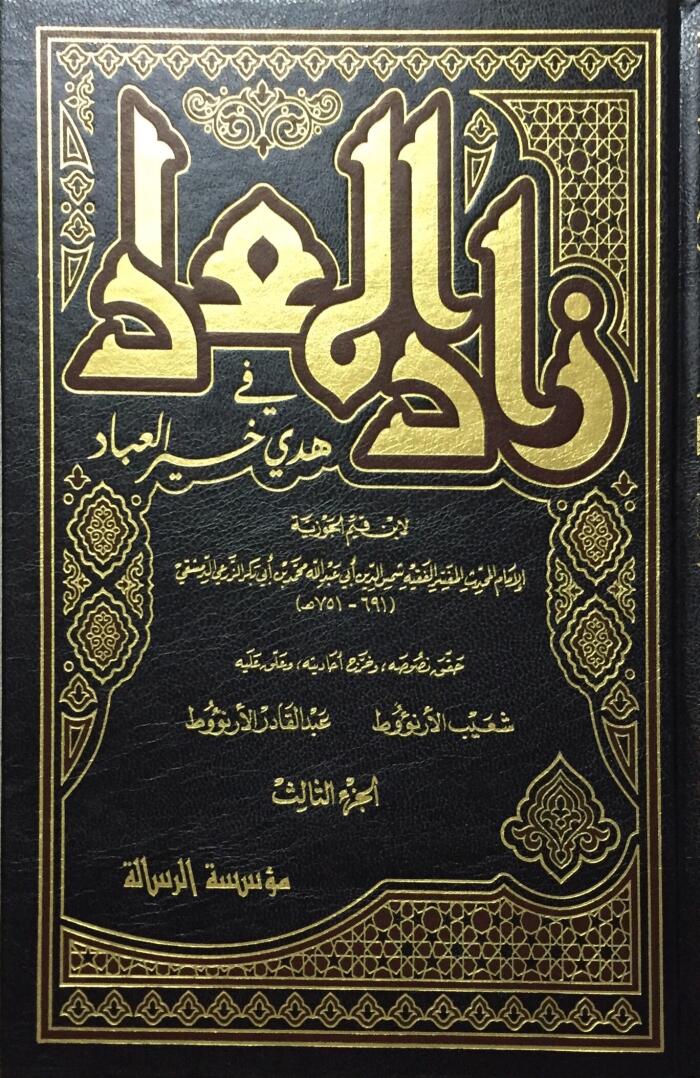 زاد المعاد
في
هدي خير العباد
لابن قيم الجوزية
الإمام المحدث المفسر الفقيه شمس الدين أبي عبد الله محمد بن أبي بكر الزرعي الدمشقي
(٦٩١ - ٧٥١ هـ)
حقق نصوصه، وخرج أحاديثه، وعلق عليه
شعيب الأرنؤوط عبد القادر الأرنؤوط
الجزء الثالث
مؤسسة الرسالة